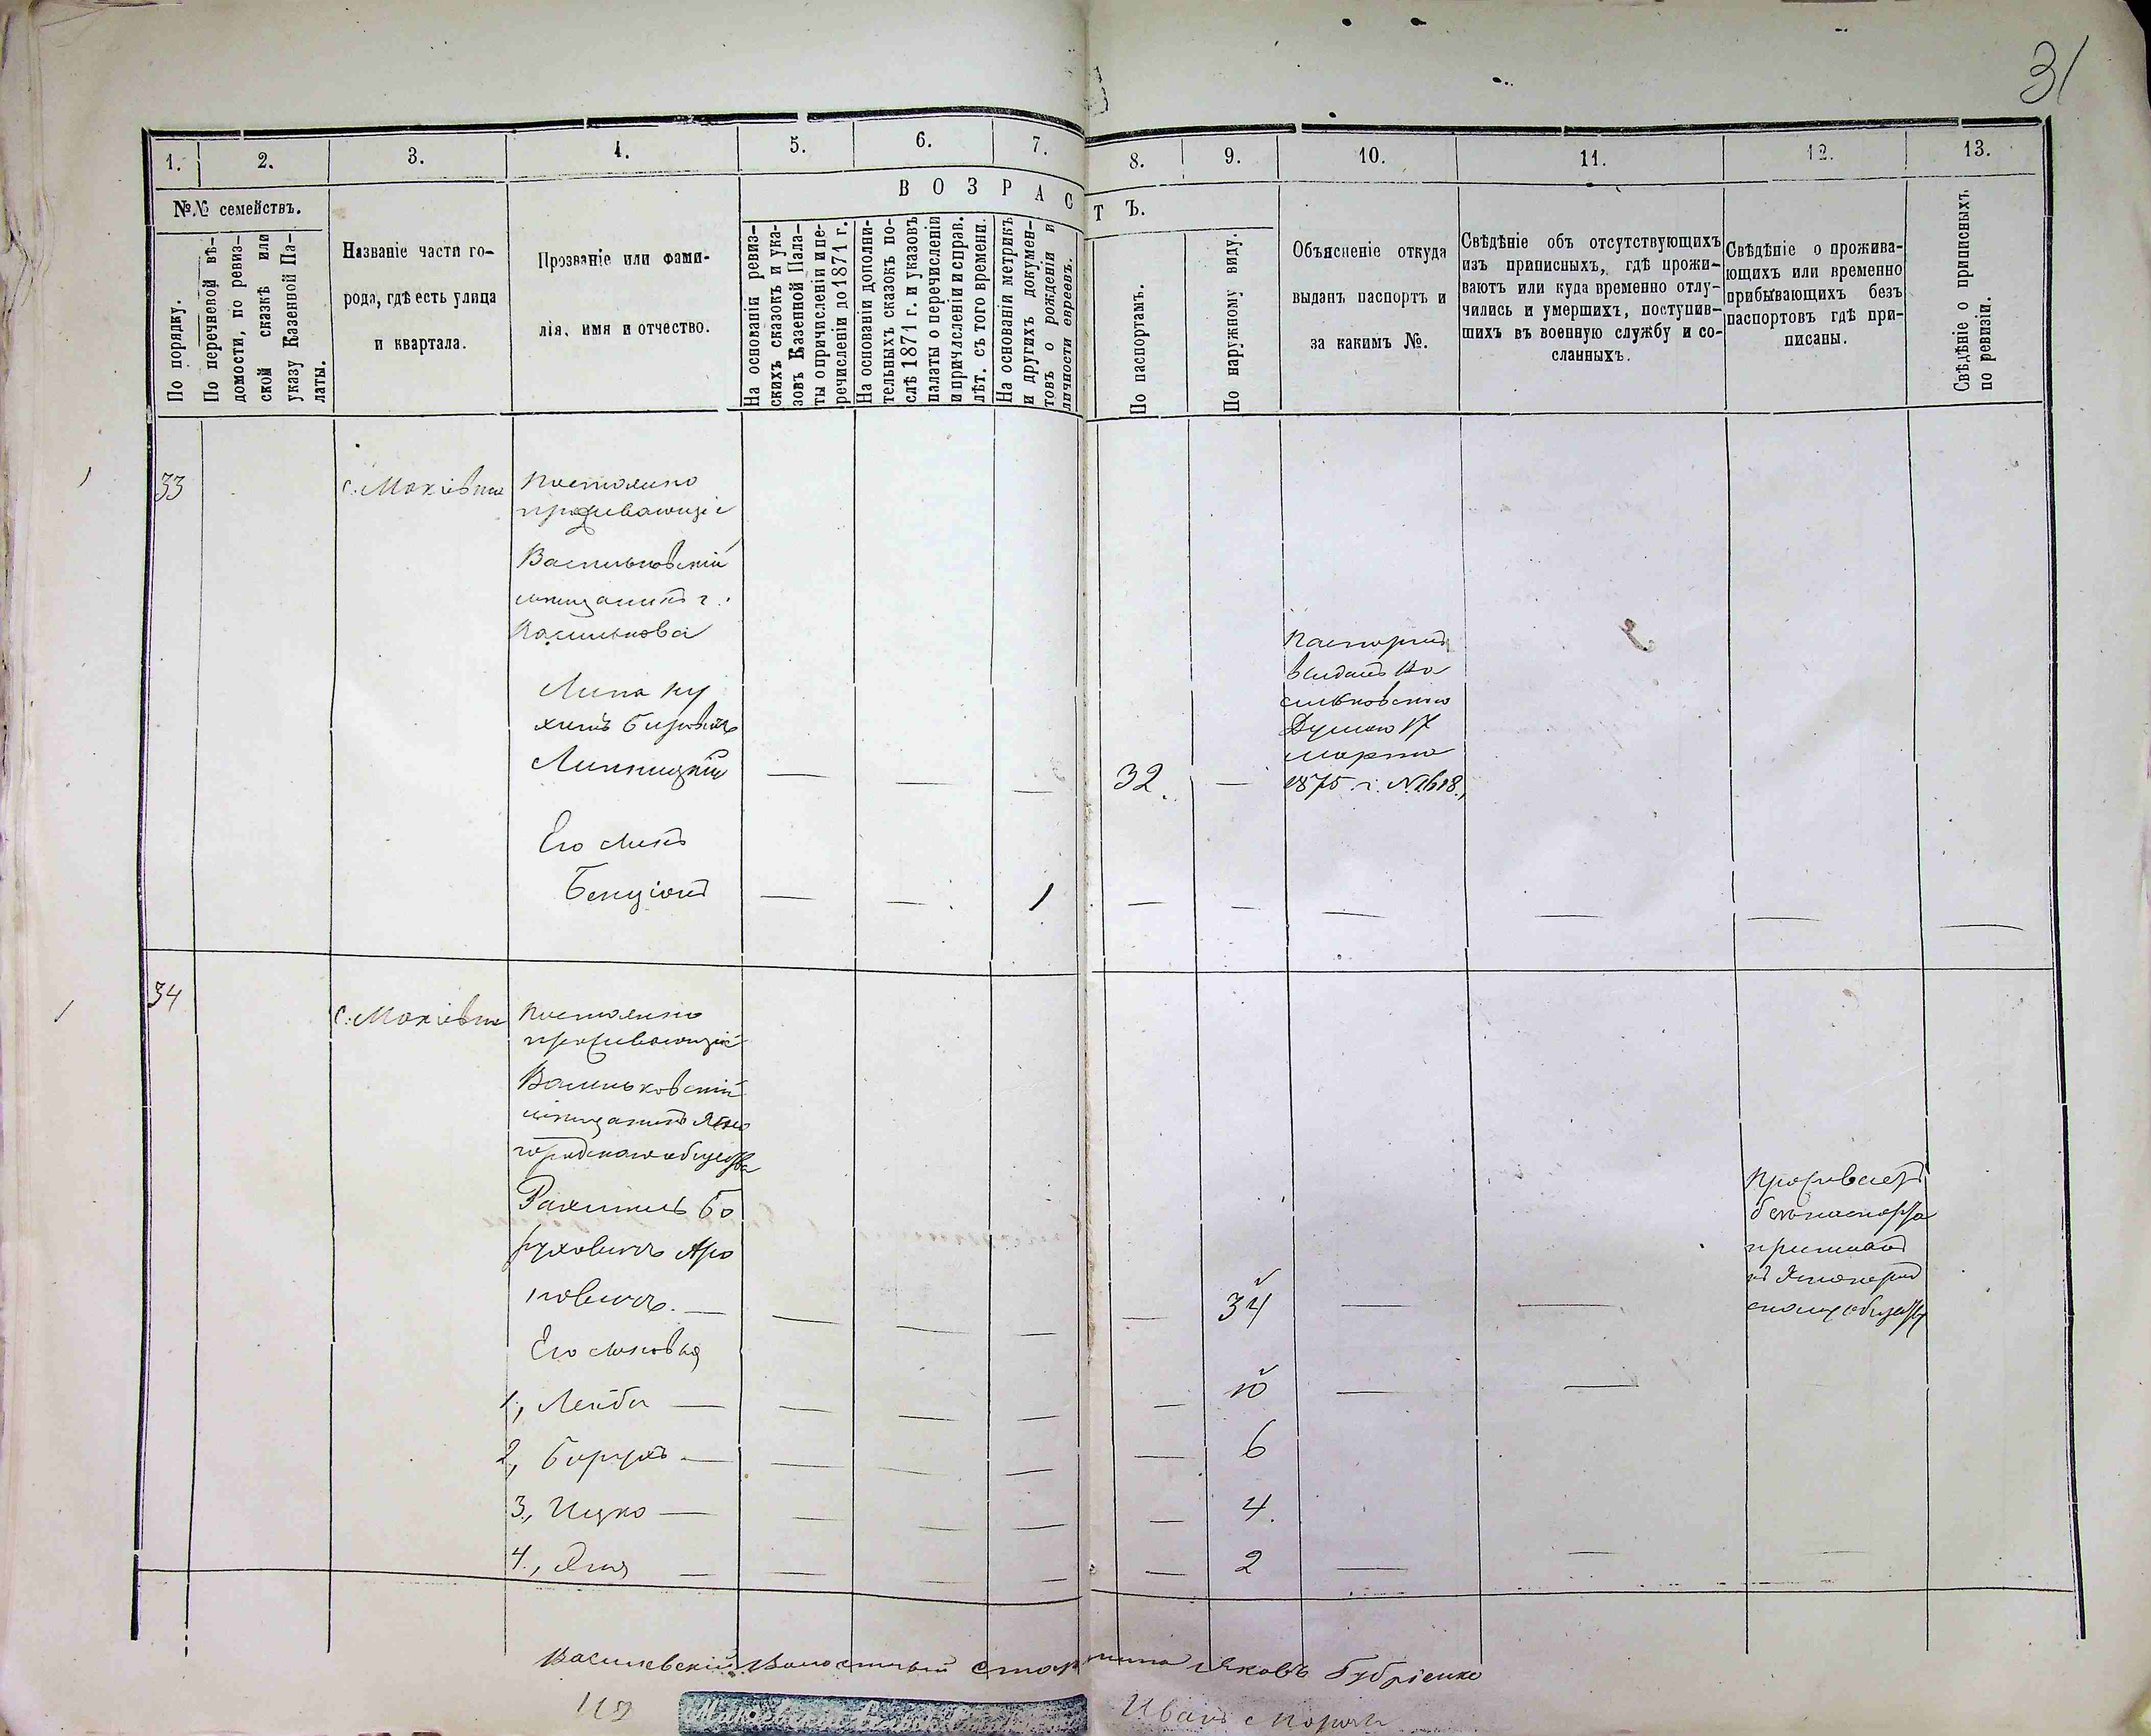 31
1. 2. 3. 4. 5. 6. 7. 8. 9. 10. 11. 12. 13.
№№ семействъ.
В О З Р А С Т Ъ.
По порядку.
По перечневой вѣ-
домости, по ревиз-
ской сказкѣ или
указу Казенной Па-
латы.
Названіе части го-
рода, гдѣ есть улица
и квартала.
Прозваніе или фами-
лія, имя и отчество.
На основаніи ревиз-
скихъ сказокъ и ука-
зовъ Казенной Пала-
ты о причисленіи и пе-
речисленіи до 1871 г.
На основаніи дополни-
тельныхъ сказокъ по-
слѣ 1871 г. и указовъ
палаты о перечисленіи
и причисленіи и справ.
лѣт. съ того времени.
На основаніи метрикъ
и другихъ докумен-
товъ о рожденіи и
личности евреевъ.
По паспортамъ.
По наружному виду.
Объясненіе откуда
выданъ паспортъ и
за какимъ №.
Свѣдѣніе объ отсутствующихъ
изъ приписныхъ, гдѣ прожи-
ваютъ или куда временно отлу-
чились и умершихъ, поступив-
шихъ въ военную службу и со-
сланныхъ.
Свѣдѣніе о прожива-
ющихъ или временно
прибывающихъ безъ
паспортовъ гдѣ при-
писаны.
Свѣдѣніе о приписныхъ
по ревизіи.
33
с. Макіевка
Постоянно
проживающіе
Васильковскій
мѣщанинъ г.
Василькова
Липа
Липницкій
32.
Паспортъ
выданъ Ва
сильковскою
Думою 17
марта
1875 г. №1618.
Его сынъ
Бенціонъ
1
34
с. Макіевка
Постоянно
проживающіе
Васильковскій
мѣщанинъ Ясно
городскаго общества
Рахмиль Бо
руховичъ Аро
новичъ.
34
Проживаетъ
безъ паспорта
приписанъ
къ Ясногород
скому обществу
Его сыновья
1, Лейба
10
2, Борухъ
6
3, Ицко
4.
4,
2
Волостный Старшина Яковъ
Иванъ